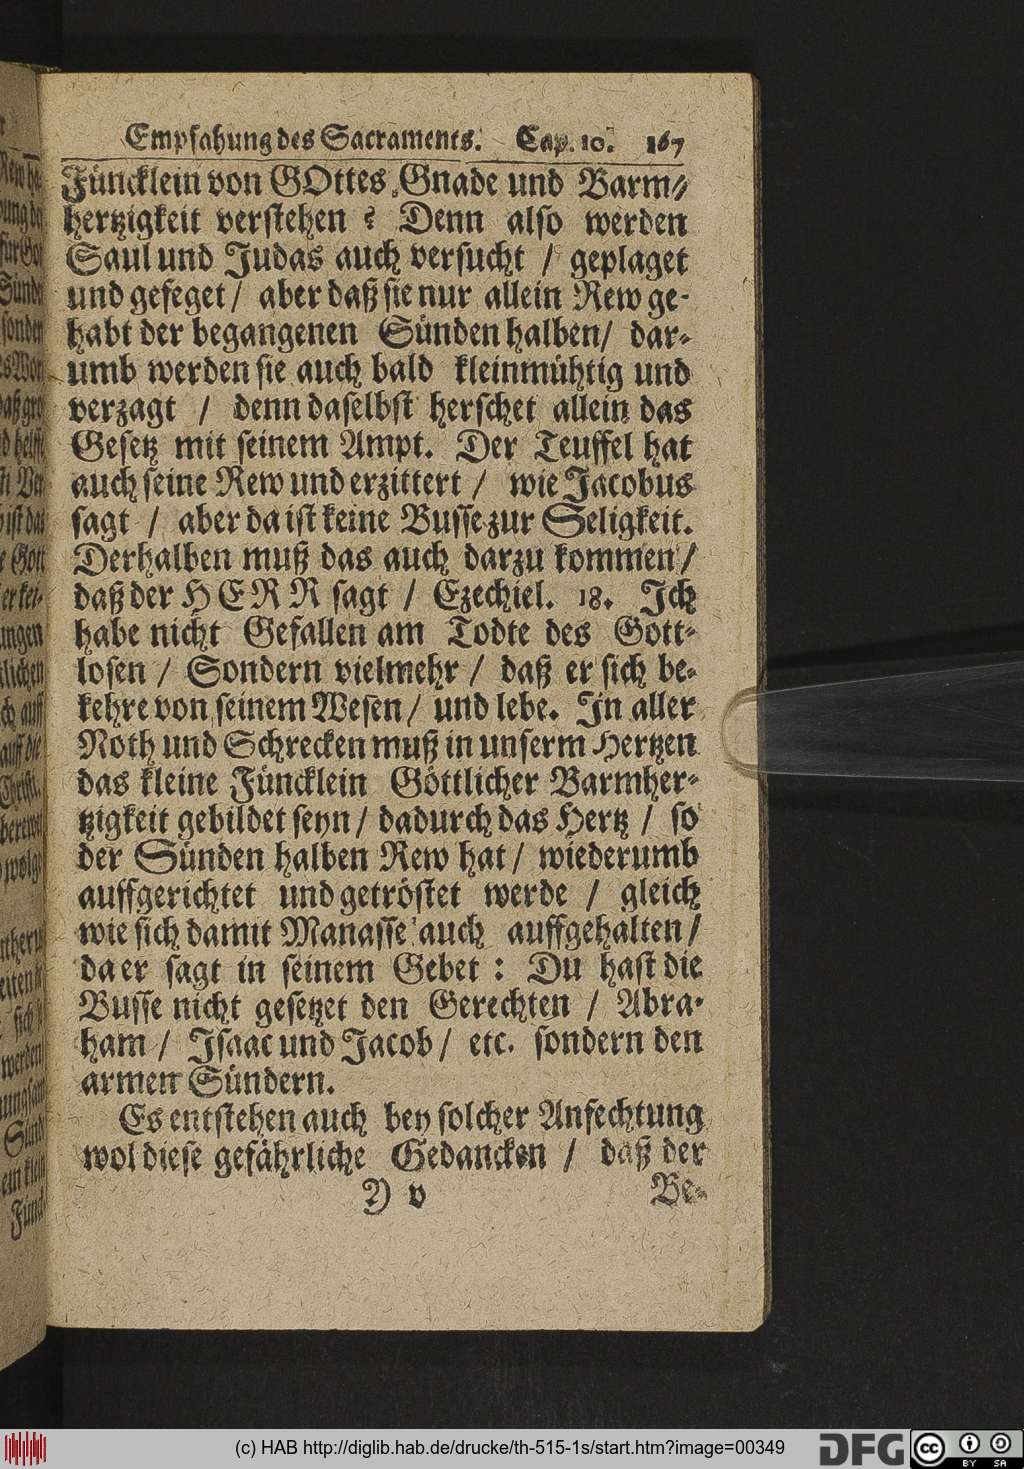 Empfahung des Sacraments. Cap. 10. 167
Füncklein von GOttes Gnade und Barm-
hertzigkeit verstehen? Denn also werden
Saul und Judas auch versucht / geplaget
und gefeget / aber daß sie nur allein Rew ge-
habt der begangenen Sünden halben / dar-
umb werden sie auch bald kleinmühtig und
verzagt / denn daselbst herschet allein das
Gesetz mit seinem Ampt. Der Teuffel hat
auch seine Rew und erzittert / wie Jacobus
sagt / aber da ist keine Busse zur Seligkeit.
Derhalben muß das auch darzu kommen /
daß der HERR sagt / Ezechiel. 18. Ich
habe nicht Gefallen am Todte des Gott-
losen / Sondern vielmehr / daß er sich be-
kehre von seinem Wesen / und lebe. In aller
Noth und Schrecken muß in unserm Hertzen
das kleine Füncklein Göttlicher Barmher-
tzigkeit gebildet seyn / dadurch das Hertz / so
der Sünden halben Rew hat / wiederumb
auffgerichtet und getröstet werde / gleich
wie sich damit Manasse auch auffgehalten /
da er sagt in seinem Gebet : Du hast die
Busse nicht gesetzet den Gerechten / Abra-
ham / Isaac und Jacob / etc. sondern den
armen Sündern.
Es entstehen auch bey solcher Anfechtung
wol diese gefährliche Gedancken / daß der
Y v Be-
(c) HAB http://diglib.hab.de/drucke/th-515-1s/start.htm?image=00349
DFG cc BY SA